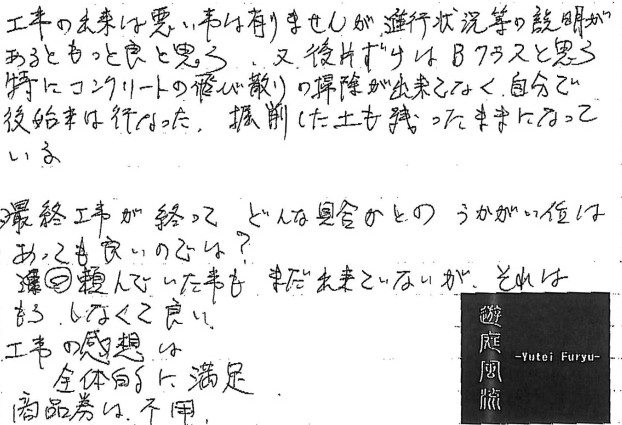 工事の出来は悪い事は有りませんが進行状況等の説明が
あるともっと良と思う、又、後片ずけはBクラスと思う
特にコンクリートの飛び散りの掃除が出来てなく、自分で
後始末は行なった。掘削した土も残ったままになって
いる
最終工事が終って どんな具合かとの うかがい位は
あっても良いのでは?
頼んでいた事も まだ出来ていないが、それは
もう しなくて良い。
工事の感想は
全体的に満足
商品券は、不用。
遊庭風流
-Yutei Furyu-